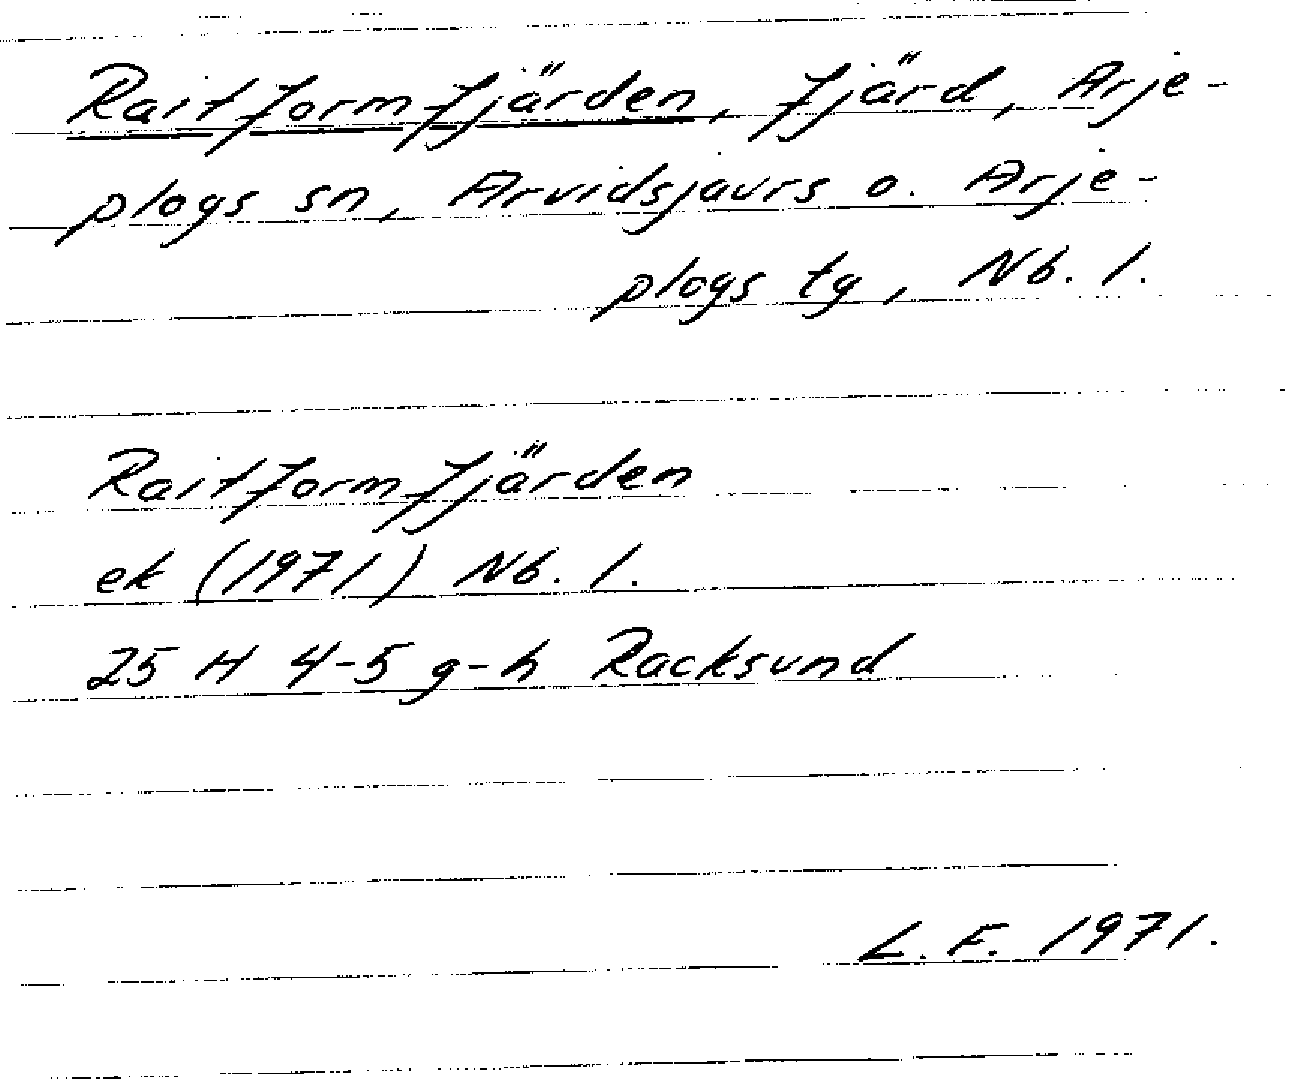 Raitformfjärden, fjärd, Arje-
plogs sn, Arvidsjaurs o. Arje-
plogs tg, Nb. l.
Raitformfjärden
ek (1971) Nb. l.
25 H 4-5 g-h Racksund
L. F. 1971.